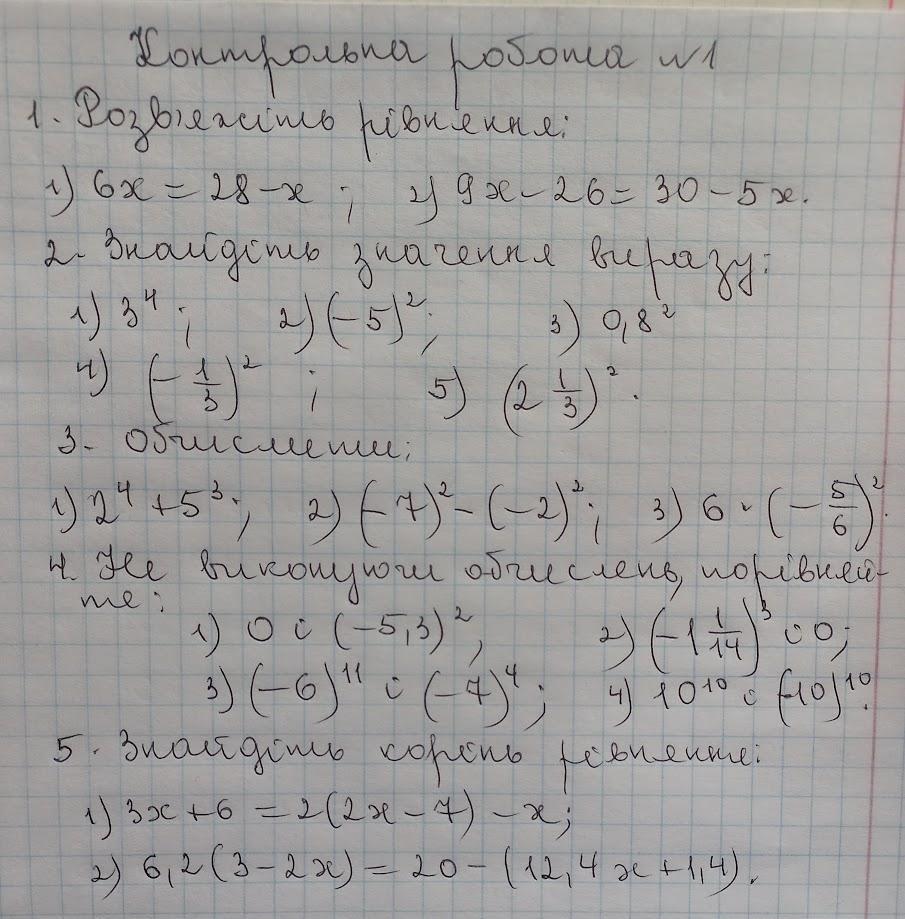 Контрольна робота №1
1. Розв'яжіть рівняння:
1) 6x = 28 - x ; 2) 9x - 26 = 30 - 5x.
2. Знайдіть значення виразу:
1) 3⁴ ; 2) (-5)² ; 3) 0,8²
4) (-1/3)² ; 5) (2 1/3)².
3. Обчислити:
1) 2⁴ + 5³ ; 2) (-7)² - (-2)² ; 3) 6 · (-5/6)².
4. Не виконуючи обчислень, порівняй-
те:
1) 0 і (-5,3)² ; 2) (-1 1/14)³ і 0;
3) (-6)¹¹ і (-7)⁴ ; 4) 10¹⁰ і (-10)¹⁰.
5. Знайдіть корінь рівняння:
1) 3x + 6 = 2(2x - 7) - x;
2) 6,2(3 - 2x) = 20 - (12,4x + 1,4).